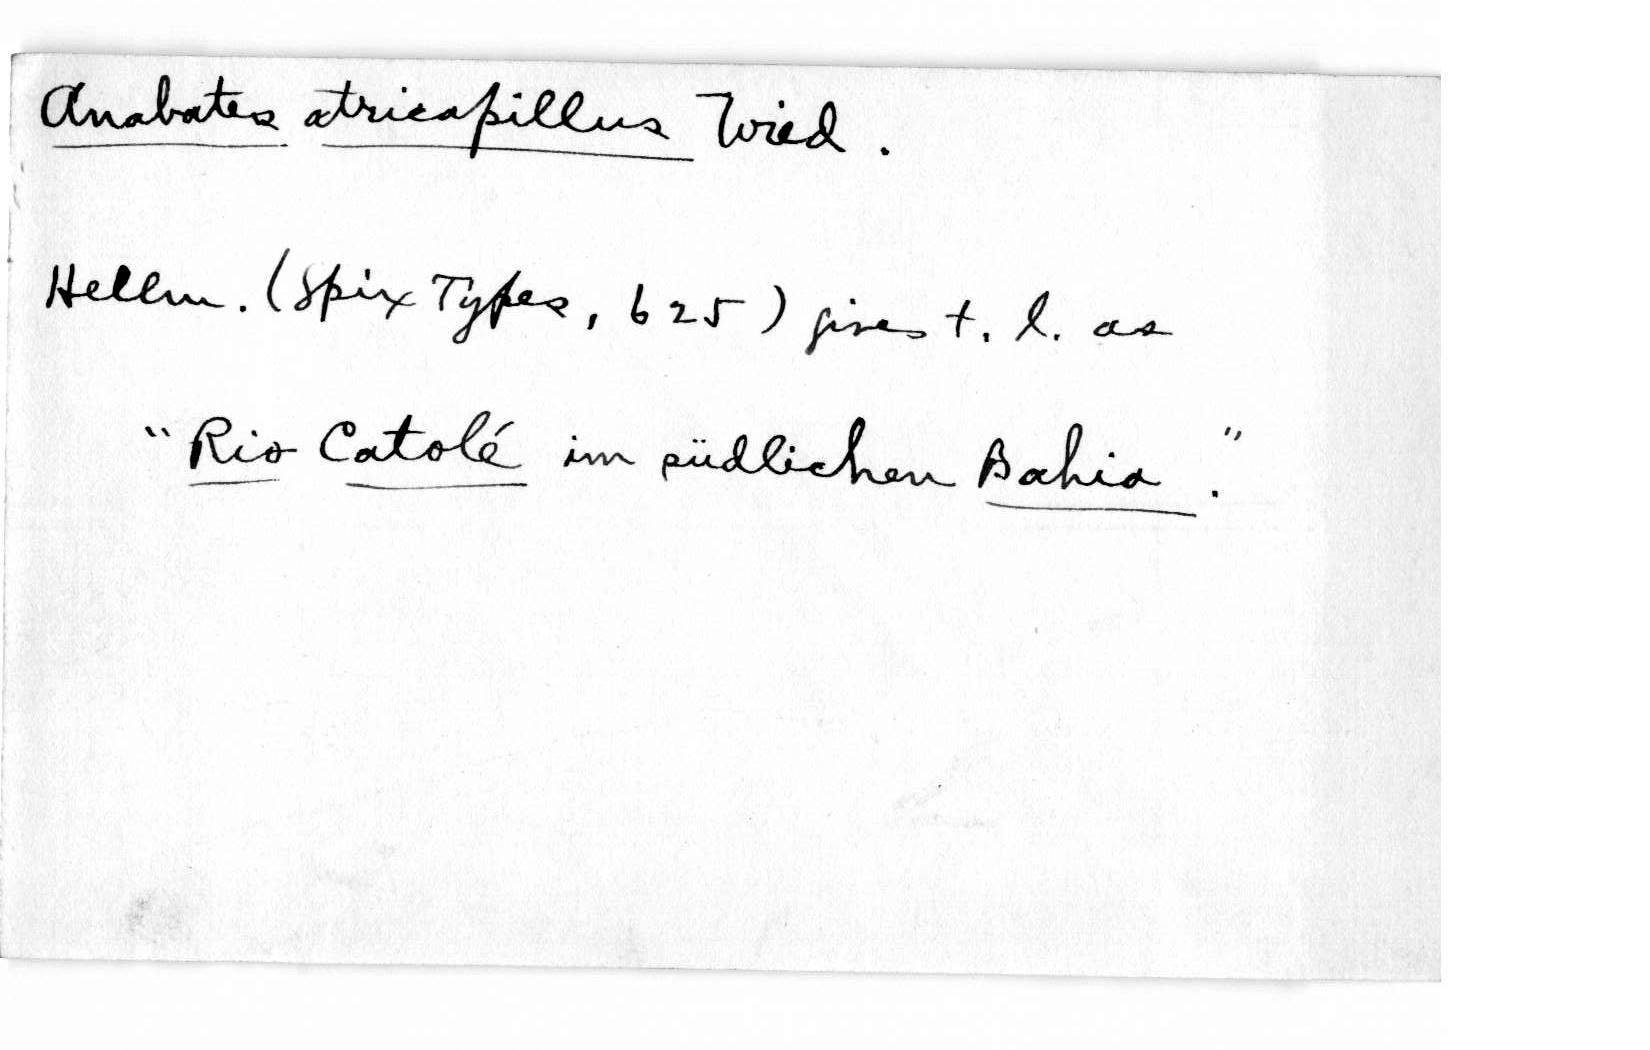 Anabates atricapillus Wied.
Hellm. (Spix Types, 625) gives t. l. as
"Rio Catolé im südlichen Bahia."